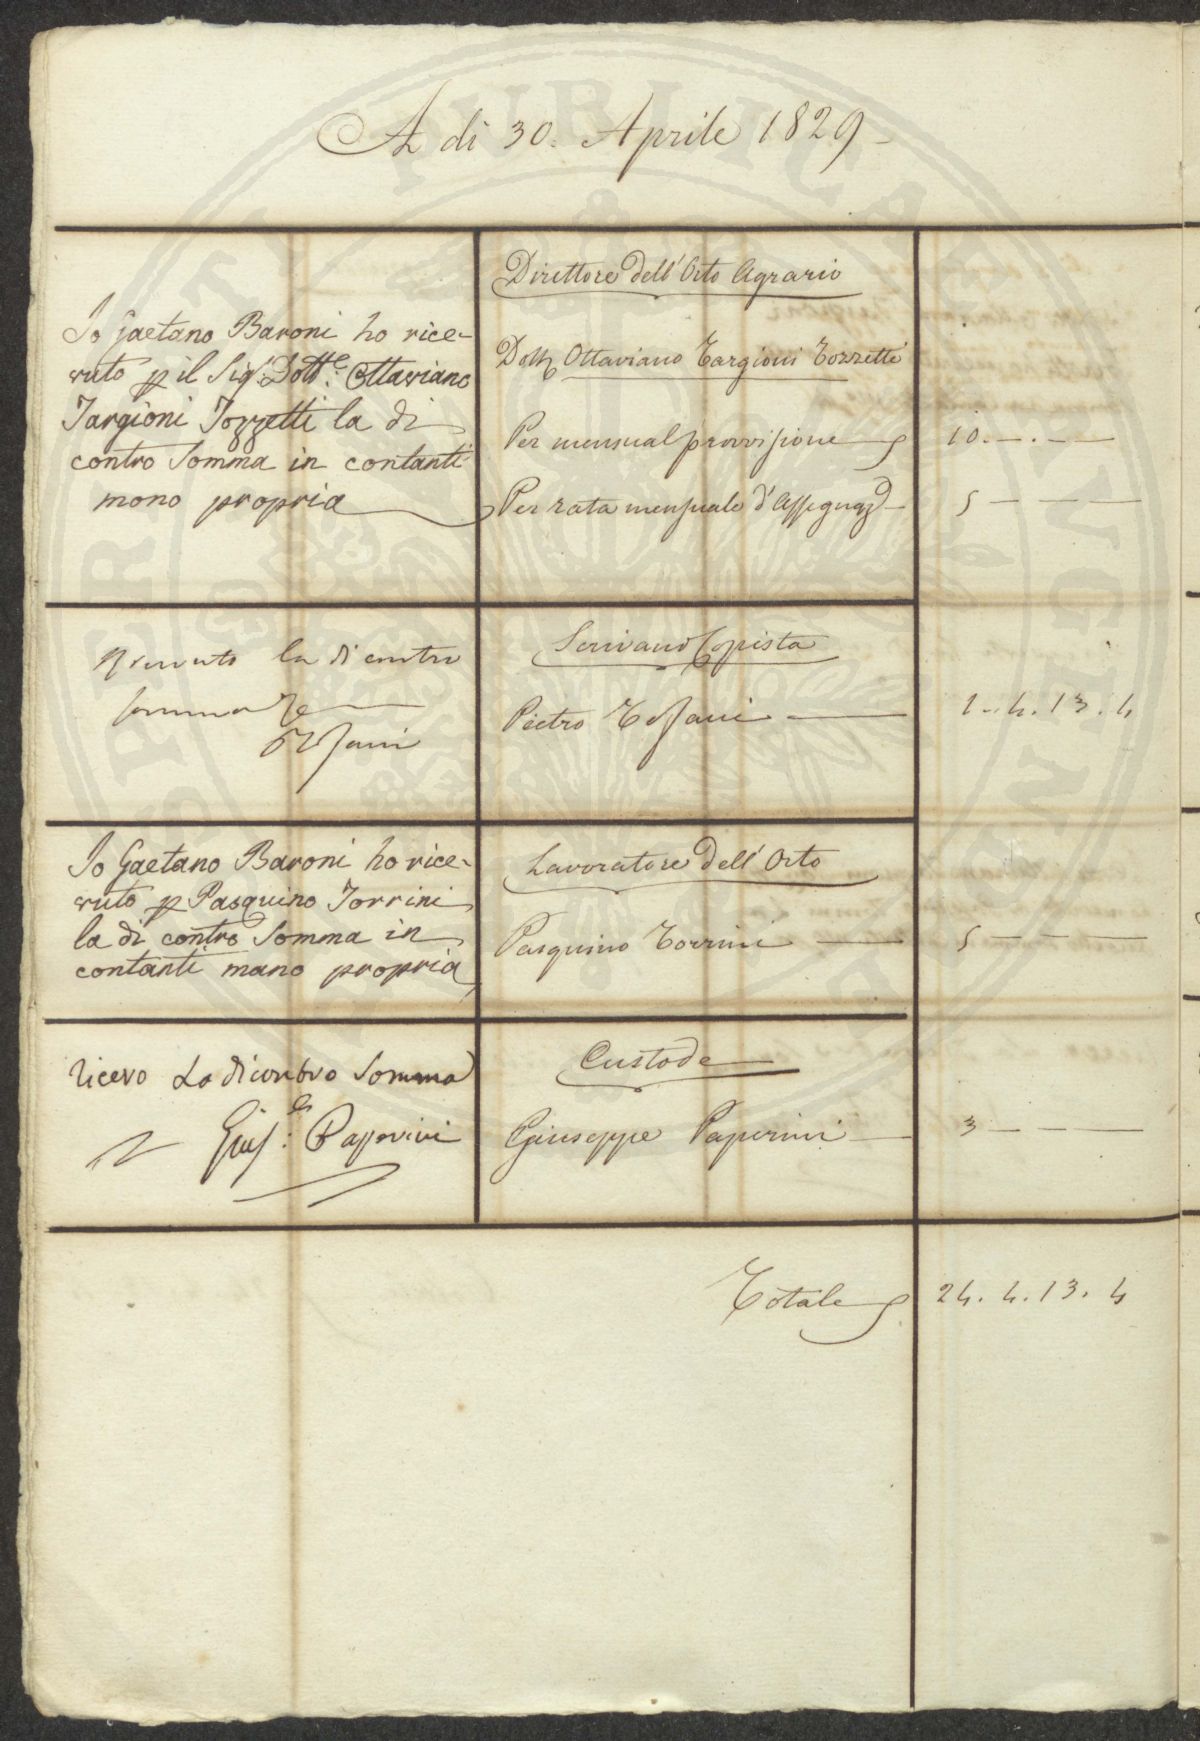 A di 30. Aprile 1829
Io Gaetano Baroni ho rice-
vuto p il Sigr. Dotte. Ottaviano
Targioni Tozzetti la di
contro Somma in contanti
mono propria
Direttore dell'Orto Agrario
Dott Ottaviano Targioni Tozzetti
Per mensual provvisione
10. — . — —
Per rata mensuale d'Assegnaz
5 — — —
la di contro
somma
Scrivano Copista
Pietro Tessani
1. 4. 13. 4
Io Gaetano Baroni ho rice-
vuto p Pasquino Torrini
la di contro Somma in
contanti mano propria
Lavoratore dell'Orto
Pasquino Torrini
5 — — —
ricevo La di contro Somma
Gius.e Paperini
Custode
Giuseppe Paperini
3 — — —
Totale
24. 4. 13. 4